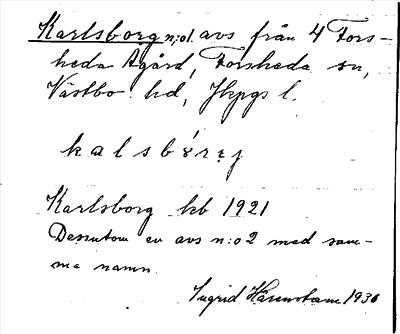 Karlsborg n:o1. avs från 4 Fors-
heda Ågård, Forsheda sn,
Västbo hd, Jkpgs l.
kalsbórj
Karlsborg kb 1921
Dessutom en avs n:o 2 med sam-
ma namn.
Ingrid Härenstam 1936